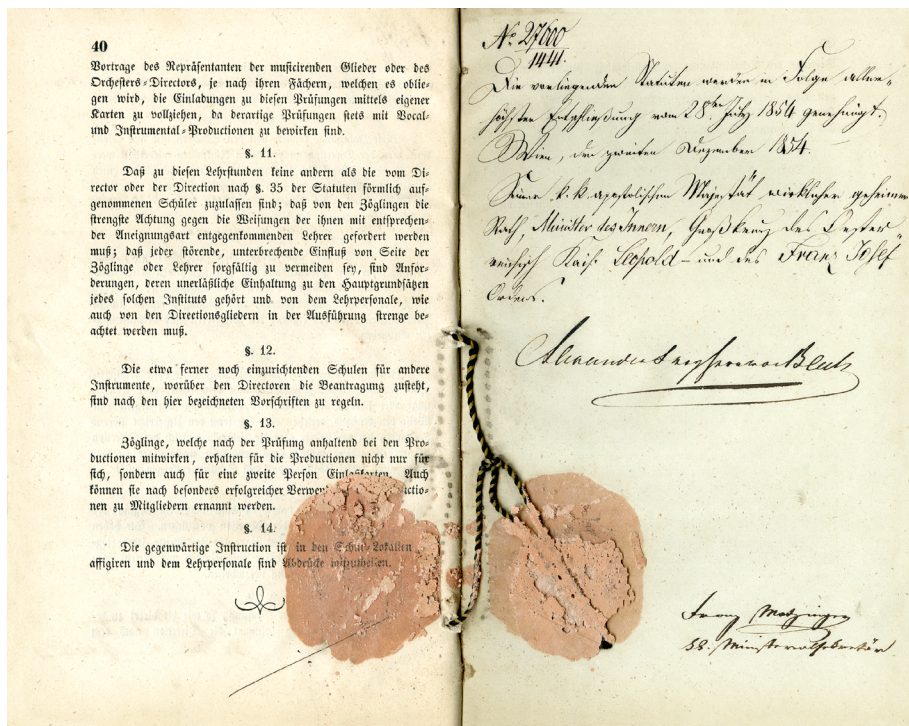 40
Vortrage des Repräsentanten der musicirenden Glieder oder des
Orchesters-Directors, je nach ihren Fächern, welchen es oblie-
gen wird, die Einladungen zu diesen Prüfungen mittels eigener
Karten zu vollziehen, da derartige Prüfungen stets mit Vocal-
und Instrumental-Productionen zu bewirken sind.
§. 11.
Daß zu diesen Lehrstunden keine andern als die vom Di-
rector oder der Direction nach §. 35 der Statuten förmlich auf-
genommenen Schüler zuzulassen sind; daß von den Zöglingen die
strengste Achtung gegen die Weisungen der ihnen mit entsprechen-
der Aneignungsart entgegenkommenden Lehrer gefordert werden
muß; daß jeder störende, unterbrechende Einfluß von Seite der
Zöglinge oder Lehrer sorgfältig zu vermeiden sey, sind Anfor-
derungen, deren unerläßliche Einhaltung zu den Hauptgrundsätzen
jedes solchen Instituts gehört und von dem Lehrpersonale, wie
auch von den Directionsgliedern in der Ausführung strenge be-
achtet werden muß.
§. 12.
Die etwa ferner noch einzurichtenden Schulen für andere
Instrumente, worüber den Directoren die Beantragung zusteht,
sind nach den hier bezeichneten Vorschriften zu regeln.
§. 13.
Zöglinge, welche nach der Prüfung anhaltend bei den Pro-
ductionen mitwirken, erhalten für die Productionen nicht nur für
sich, sondern auch für eine zweite Person Einlaßkarten. Auch
können sie nach besonders erfolgreicher
nen zu Mitgliedern ernannt werden.
§. 14.
Die gegenwärtige Instruction ist in den Schul-Lokalien
affigiren und dem Lehrpersonale sind Abdrücke mitzutheilen.
No. 27600
1441.
Die vorliegenden Statuten werden in Folge aller-
höchster Entschließung vom 28ten July 1854 genehmigt.
Wien, den zweiten Dezember 1854.
Seiner k. k. apostolischen Majestät wirklicher geheimer
Rath, Minister des Innern, Großkreuz des Oester-
reichisch Kais. Leopold- und des Franz Josef
Ordens.
Alexander Freyherr von Bach
Franz
kk. Ministerialsekretär